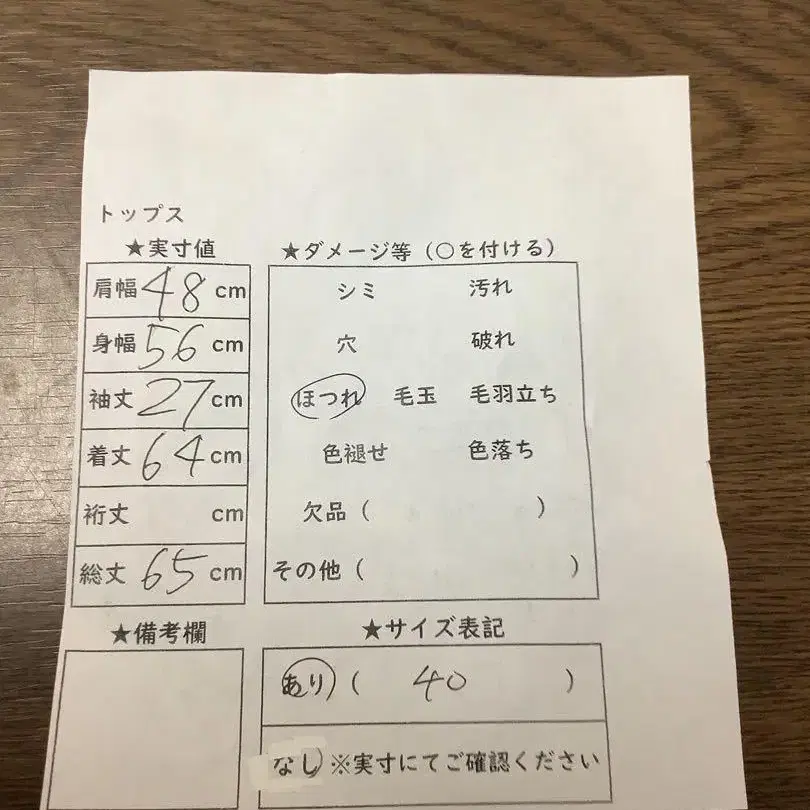 トップス
★実寸値
肩幅 48 cm
身幅 56 cm
袖丈 27 cm
着丈 64 cm
裄丈 cm
総丈 65 cm
★ダメージ等（○を付ける）
シミ 汚れ
穴 破れ
ほつれ 毛玉 毛羽立ち
色褪せ 色落ち
欠品（ ）
その他（ ）
★備考欄
★サイズ表記
あり（ 40 ）
なし ※実寸にてご確認ください